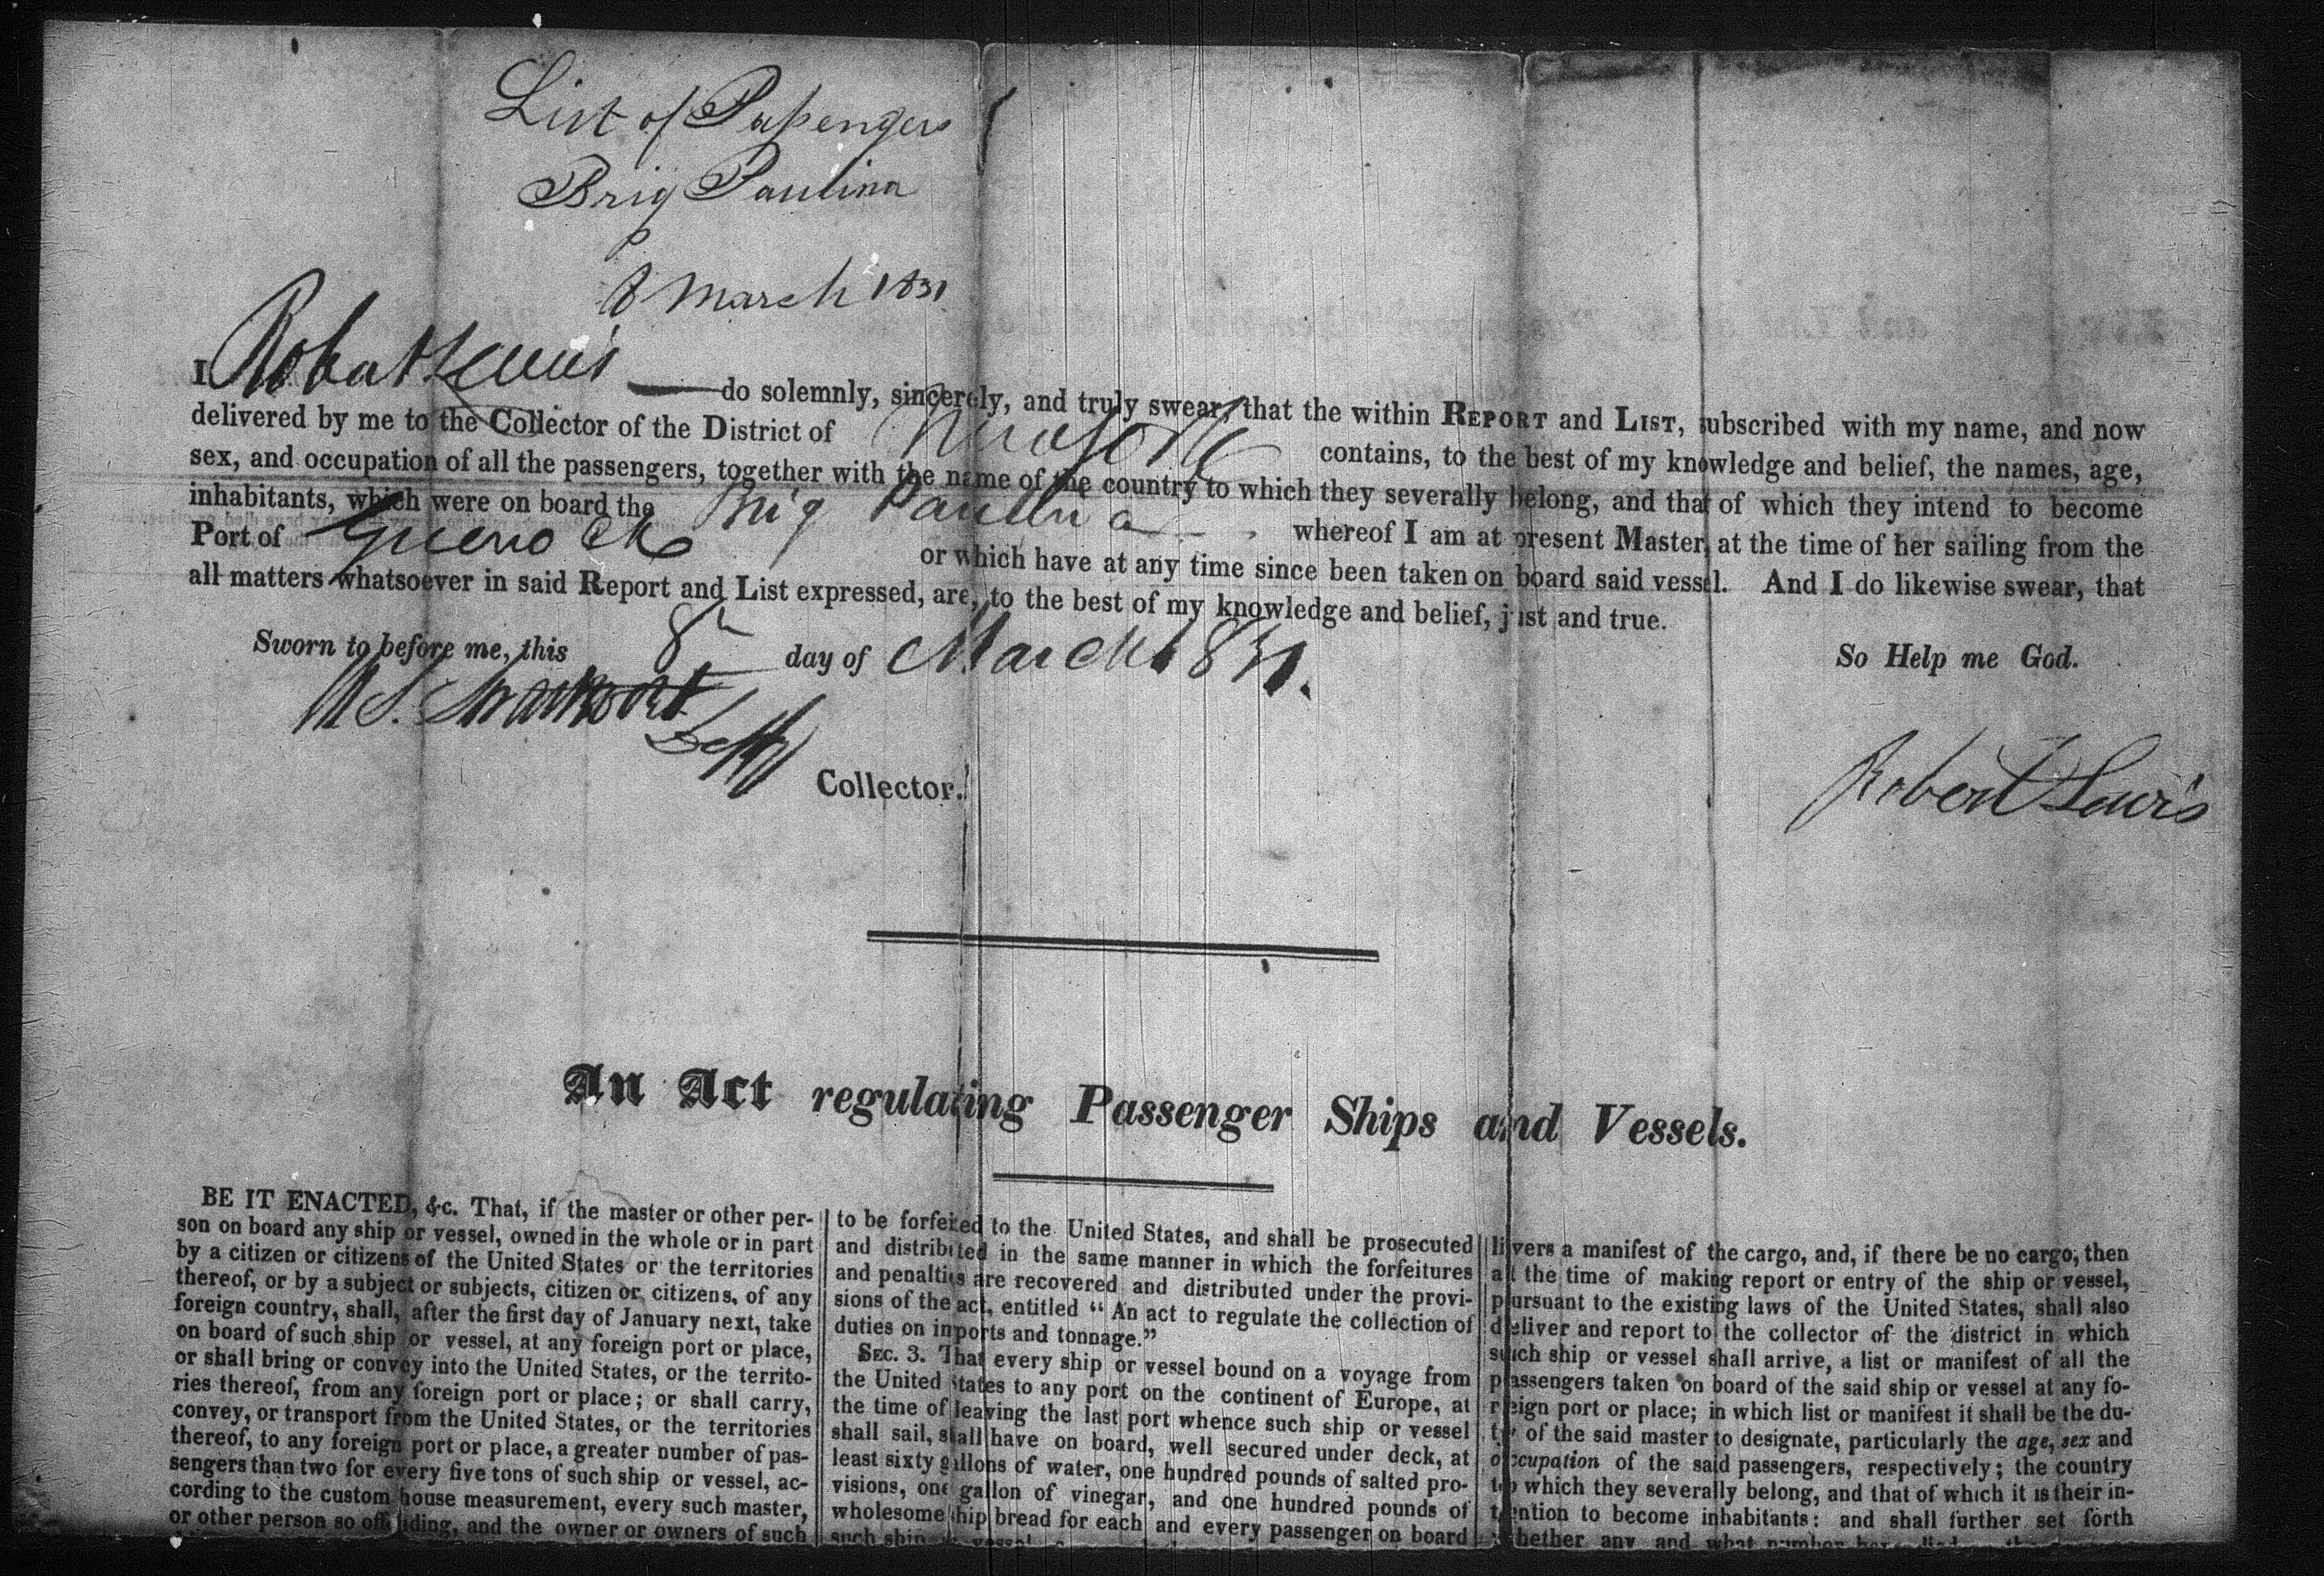 List of Passengers
Brig Paulina
8 March 1831
I Robert Lewis do solemnly, sincerely, and truly swear, that the within REPORT and LIST, subscribed with my name, and now
delivered by me to the Collector of the District of contains, to the best of my knowledge and belief, the names, age,
sex, and occupation of all the passengers, together with the name of the country to which they severally belong, and that of which they intend to become
inhabitants, which were on board the Brig Paulina whereof I am at present Master, at the time of her sailing from the
Port of Greenock or which have at any time since been taken on board said vessel. And I do likewise swear, that
all matters whatsoever in said Report and List expressed, are, to the best of my knowledge and belief, just and true.
Sworn to before me, this 8th day of March 1831. So Help me God.
Collector.
Robert Lewis
An Act regulating Passenger Ships and Vessels.
BE IT ENACTED, &c. That, if the master or other per-
son on board any ship or vessel, owned in the whole or in part
by a citizen or citizens of the United States or the territories
thereof, or by a subject or subjects, citizen or citizens, of any
foreign country, shall, after the first day of January next, take
on board of such ship or vessel, at any foreign port or place,
or shall bring or convey into the United States, or the territo-
ries thereof, from any foreign port or place; or shall carry,
convey, or transport from the United States, or the territories
thereof, to any foreign port or place, a greater number of pas-
sengers than two for every five tons of such ship or vessel, ac-
cording to the custom house measurement, every such master,
or other person so offending, and the owner or owners of such
to be forfeited to the United States, and shall be prosecuted
and distributed in the same manner in which the forfeitures
and penalties are recovered and distributed under the provi-
sions of the act, entitled "An act to regulate the collection of
duties on imports and tonnage."
SEC. 3. That every ship or vessel bound on a voyage from
the United States to any port on the continent of Europe, at
the time of leaving the last port whence such ship or vessel
shall sail, shall have on board, well secured under deck, at
least sixty gallons of water, one hundred pounds of salted pro-
visions, one gallon of vinegar, and one hundred pounds of
wholesome ship bread for each and every passenger on board
such ship or vessel
livers a manifest of the cargo, and, if there be no cargo, then
at the time of making report or entry of the ship or vessel,
pursuant to the existing laws of the United States, shall also
deliver and report to the collector of the district in which
such ship or vessel shall arrive, a list or manifest of all the
passengers taken on board of the said ship or vessel at any fo-
reign port or place; in which list or manifest it shall be the du-
ty of the said master to designate, particularly the age, sex and
occupation of the said passengers, respectively; the country
to which they severally belong, and that of which it is their in-
tention to become inhabitants: and shall further set forth
whether any and what number